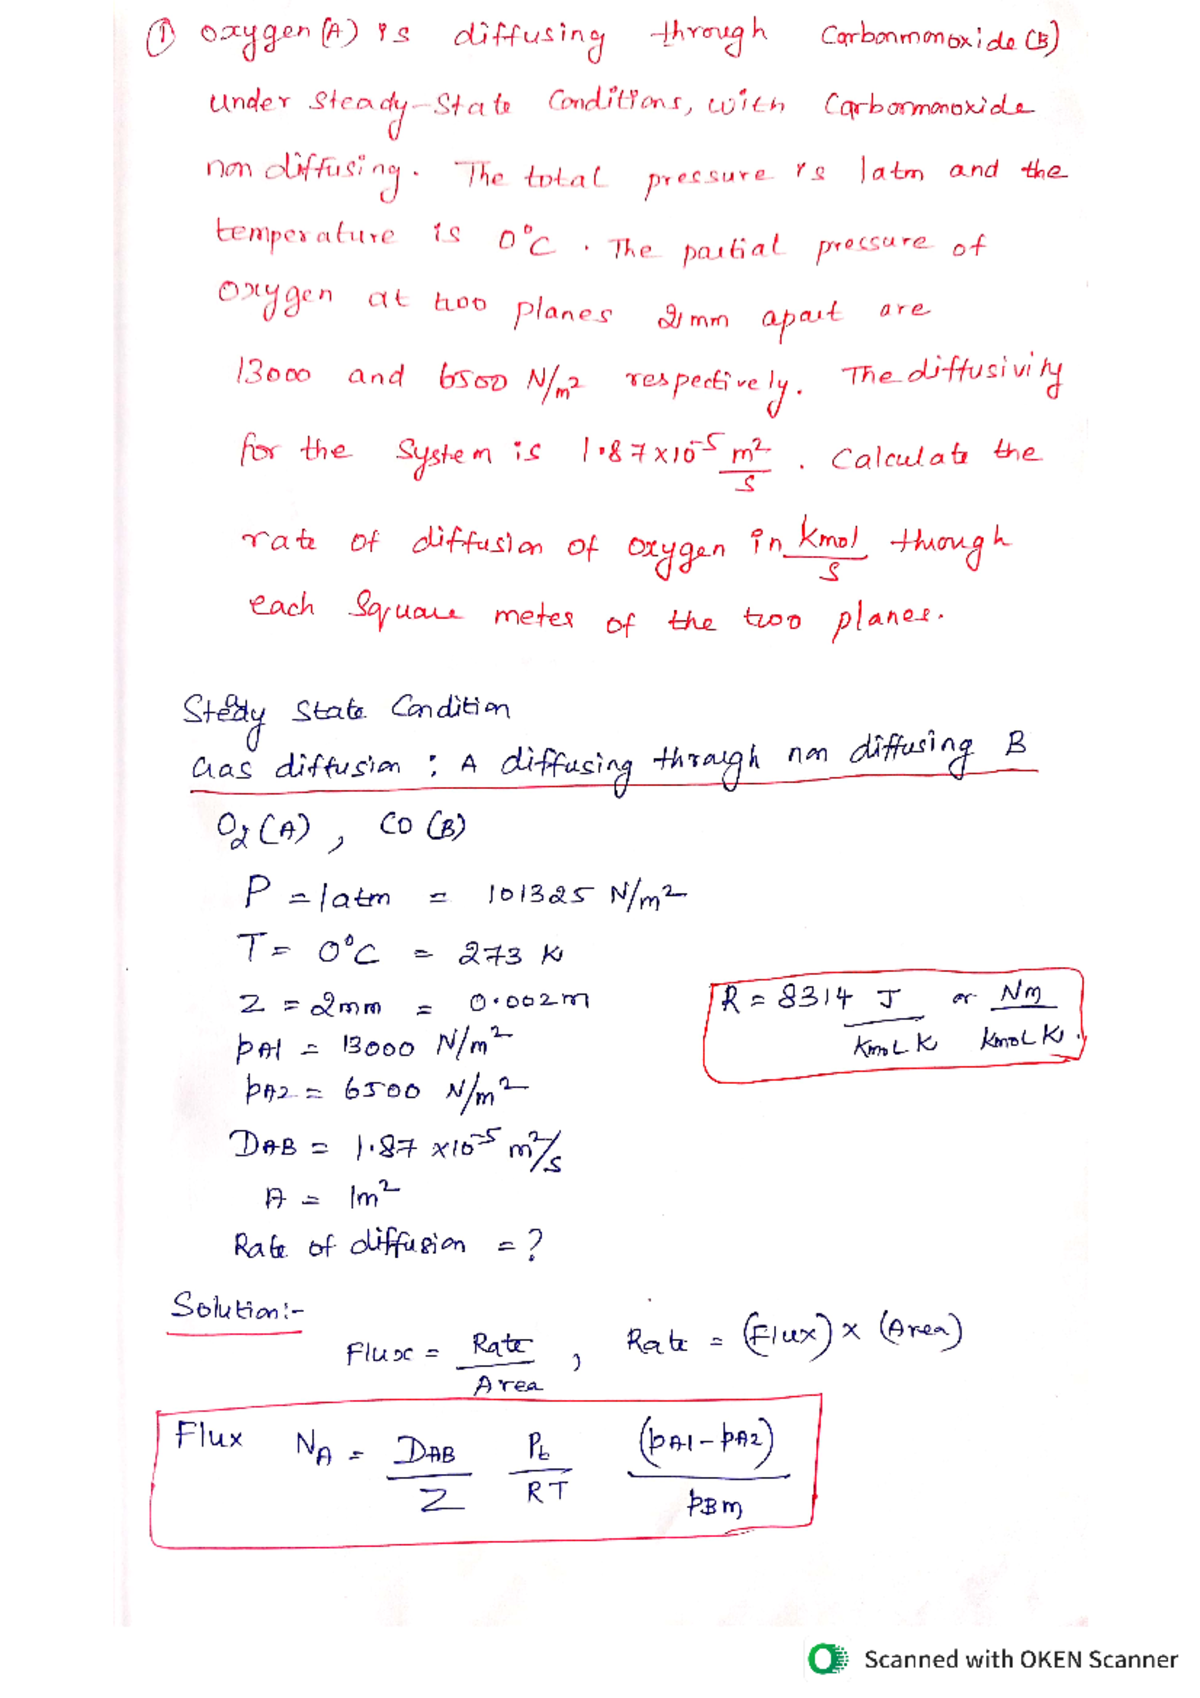 ① Oxygen (A) is diffusing through Carbonmonoxide (B)
under steady-State Conditions, with Carbonmonoxide
non diffusing. The total pressure is 1atm and the
temperature is 0°C. The partial pressure of
Oxygen at two planes 2mm apart are
13000 and 6500 N/m² respectively. The diffusivity
for the System is 1.87x10⁻⁵ m²/s. Calculate the
rate of diffusion of oxygen in kmol/s through
each Square meter of the two planes.
Steady State Condition
Gas diffusion : A diffusing through non diffusing B
O₂ (A), CO (B)
P = 1atm = 101325 N/m²
T = 0°C = 273 K
Z = 2mm = 0.002m
R = 8314 J/kmol K or Nm/kmol K.
pA1 = 13000 N/m²
pA2 = 6500 N/m²
DAB = 1.87 x10⁻⁵ m²/s
A = 1m²
Rate of diffusion = ?
Solution:-
Flux = Rate/Area , Rate = (Flux) x (Area)
Flux NA = DAB/Z Pt/RT (pA1-pA2)/pBm
Scanned with OKEN Scanner